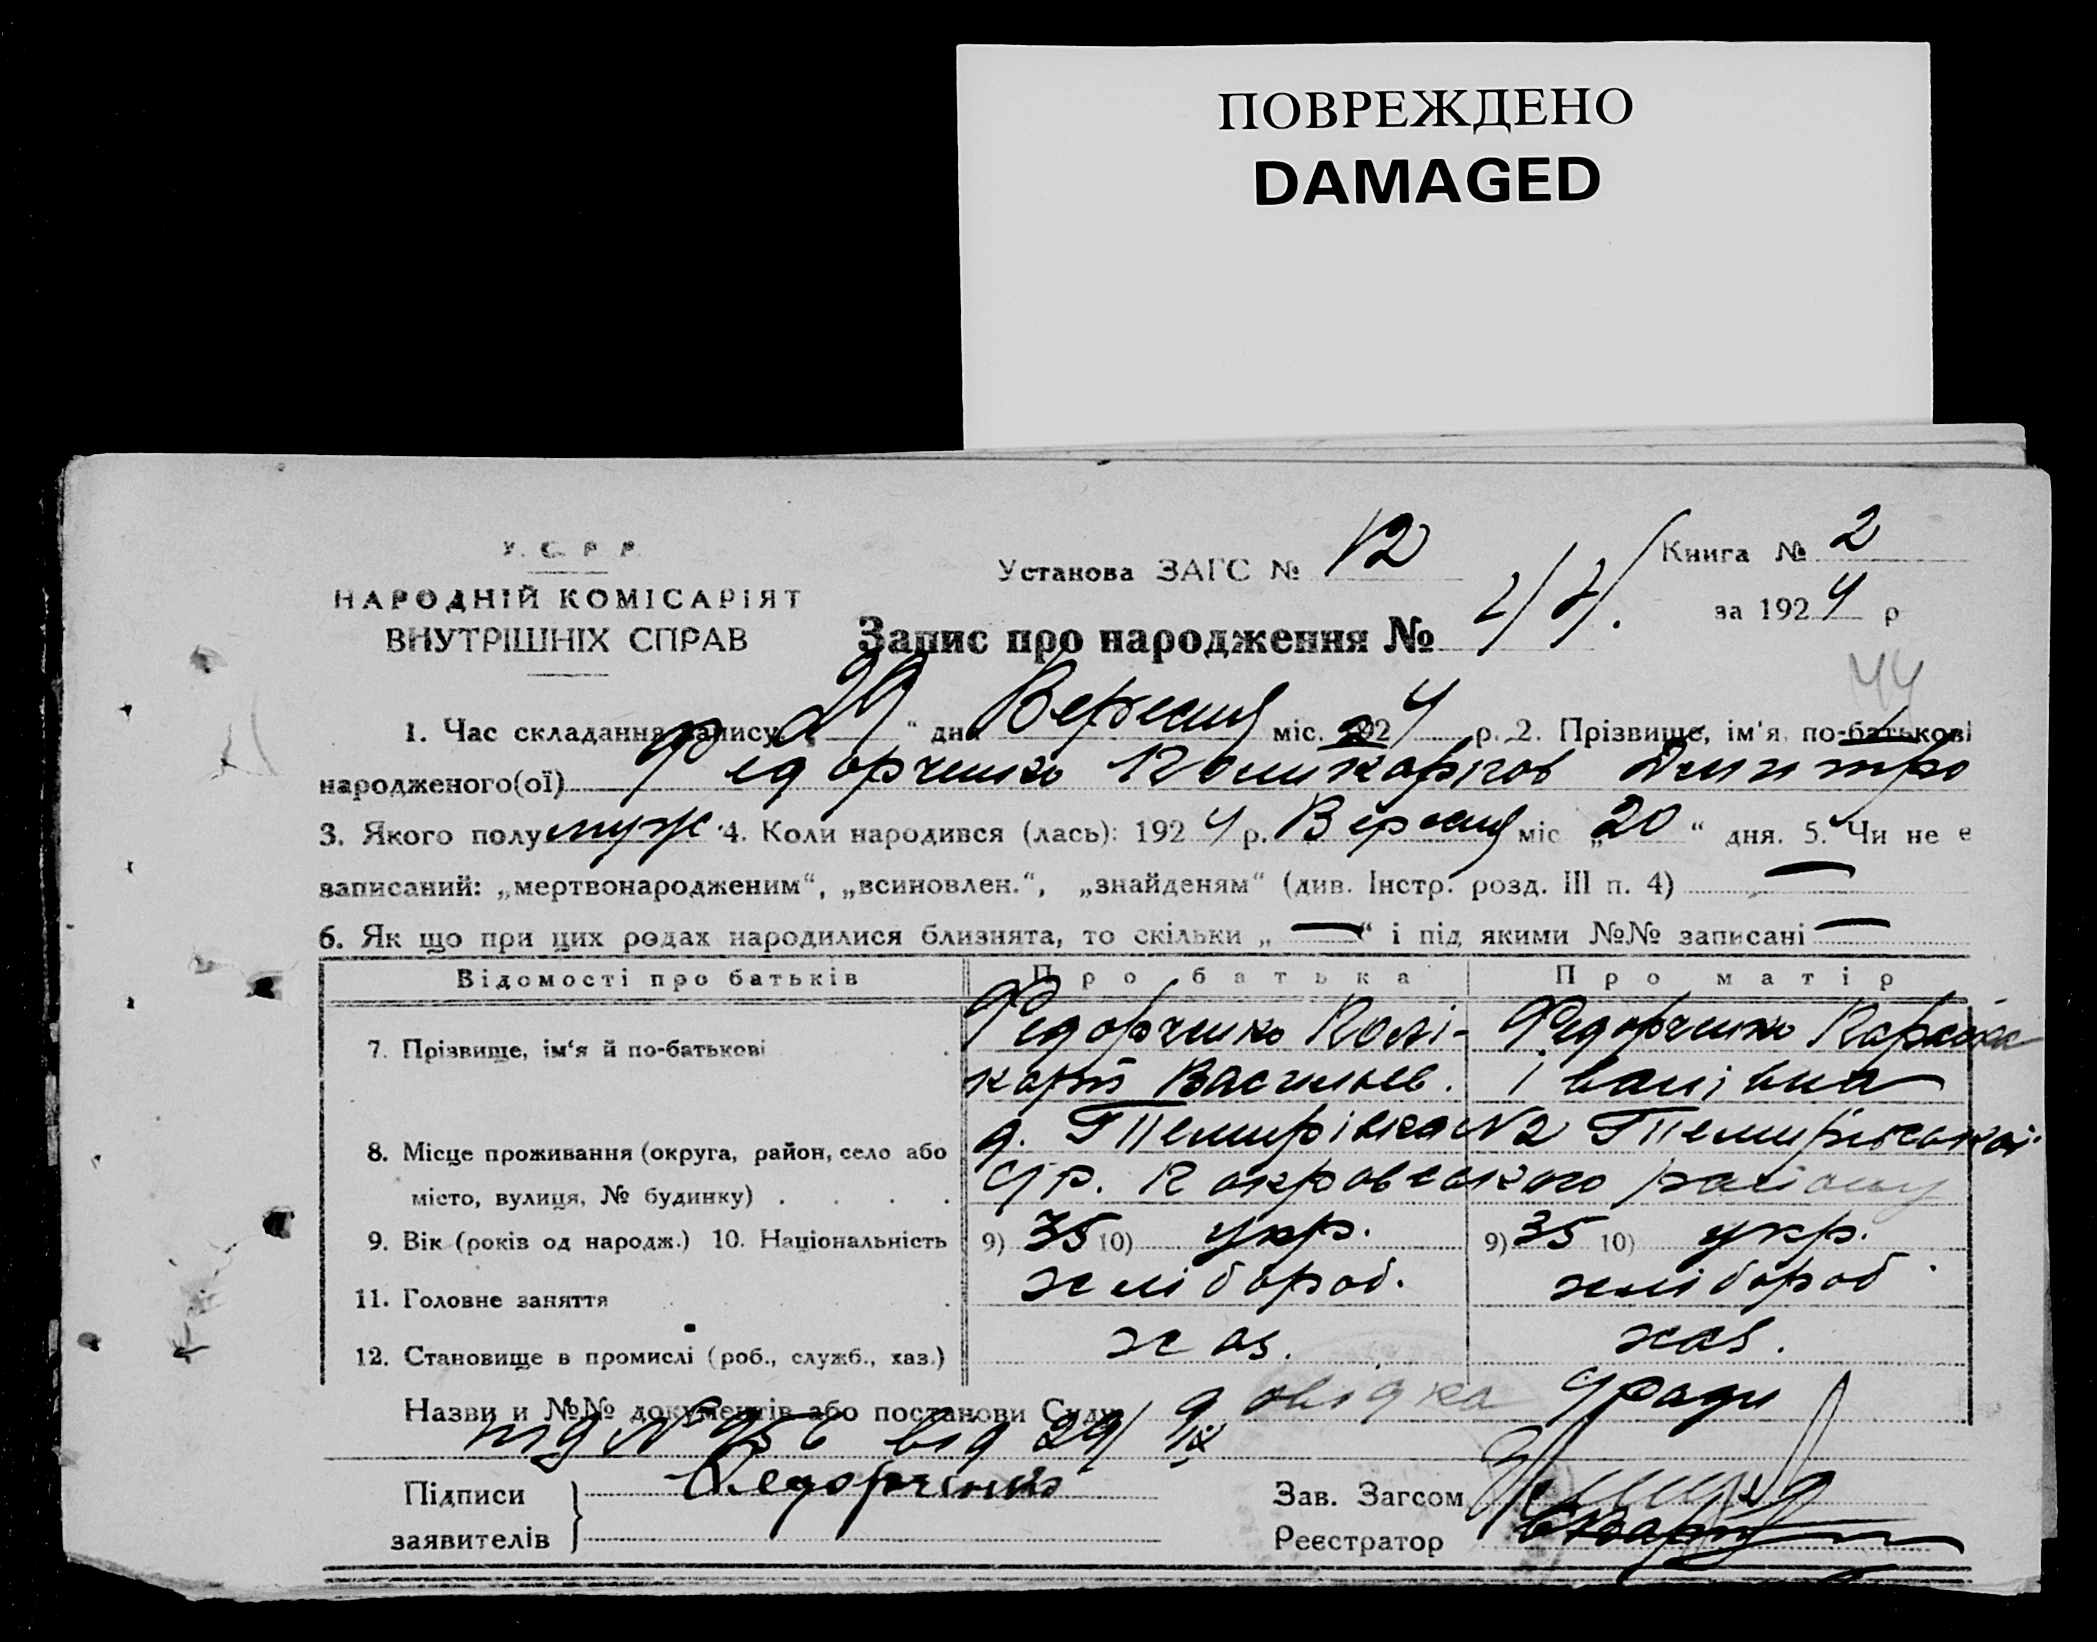 ПОВРЕЖДЕНО
DAMAGED
У. С. Р. Р.
НАРОДНІЙ КОМІСАРІЯТ
ВНУТРІШНІХ СПРАВ
Установа ЗАГС № 12
Книга № 2
за 1924 р
Запис про народження №
44
1. Час складання запису „29“ дня Вересня міс. 1924 р. 2. Прізвище, ім'я по-батькові
народженого(ої) Федорченко Поликарпов Дмитро
3. Якого полу муж 4. Коли народився (лась): 1924 р. Вересня міс „20“ дня. 5. Чи не є
записаний: „мертвонародженим“, „всиновлен.“, „знайденям“ (див. Інстр. розд. III п. 4) —
6. Як що при цих родах народилися близнята, то скільки „—“ і під якими №№ записані —
Відомості про батьків Про батька Про матір
7. Прізвище, ім'я й по-батькові Федорченко Полі- Федорченко
карп Васильев. Іванівна
8. Місце проживання (округа, район, село або д. №2
місто, вулиця, № будинку) . . . . Покровського району
9. Вік (років од народж.) 10. Національність 9) 35 10) укр. 9) 35 10) укр.
11. Головне заняття хлібороб. хлібороб
12. Становище в промислі (роб., служб., хаз.) хаз. хаз.
Назви и №№ документів або постанови Суду довідка с/ради
під № 956 від 29/IX
Підписи Федорченко
заявителів
Зав. Загсом
Реєстратор